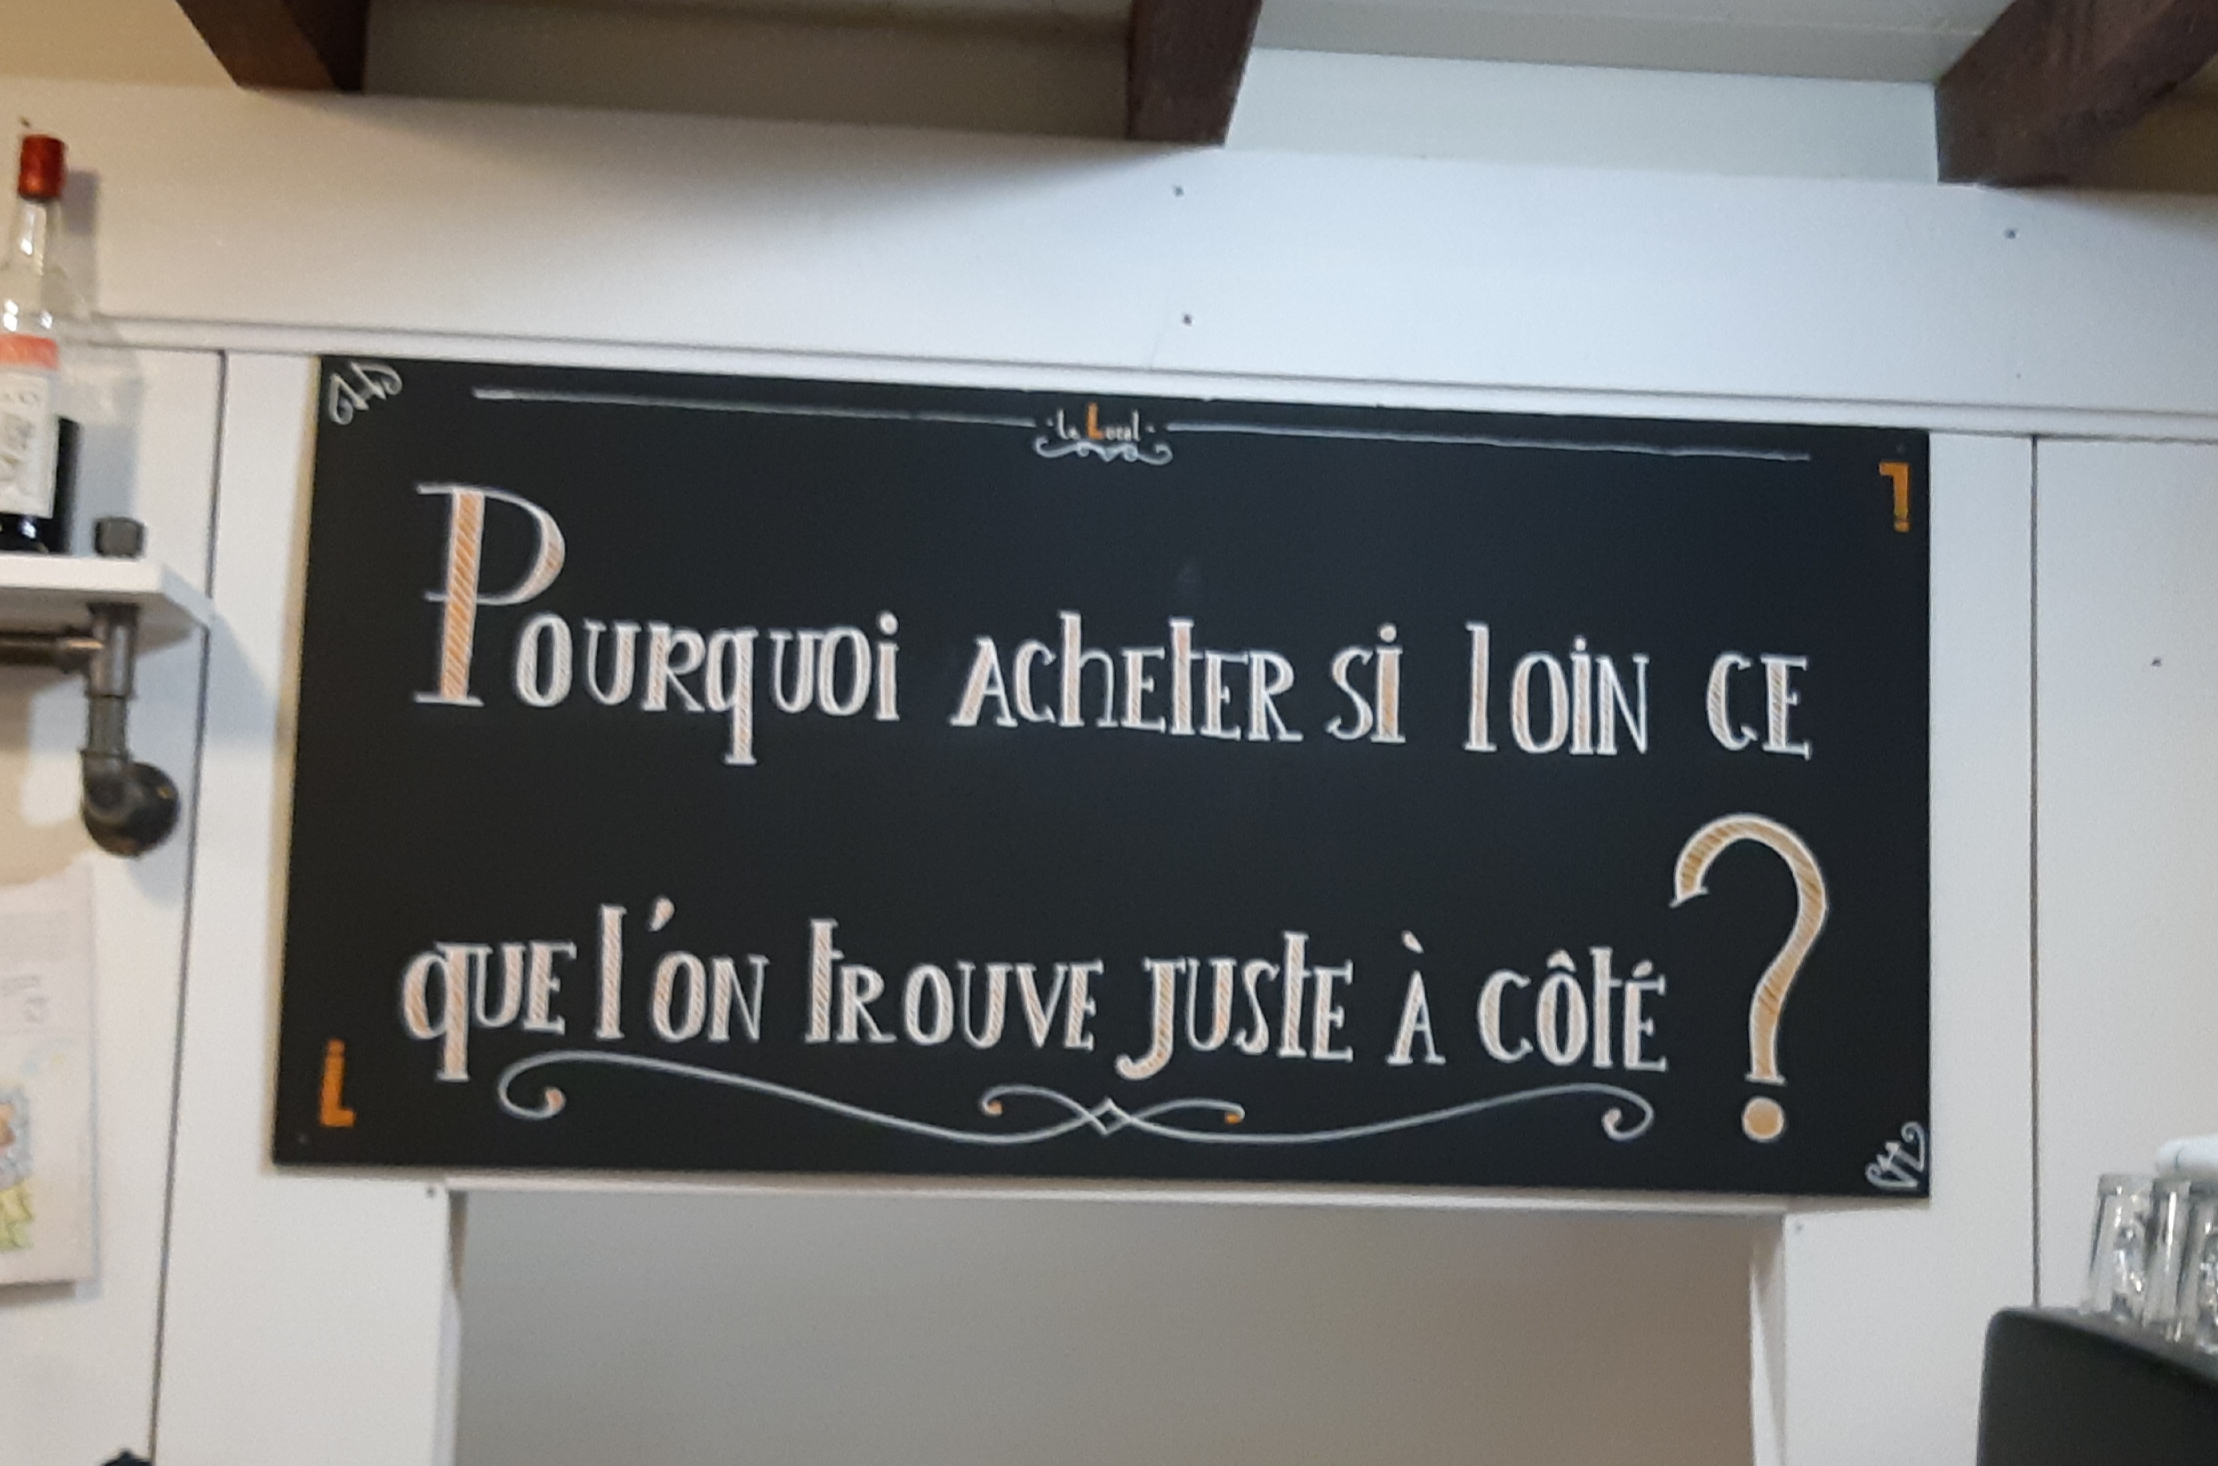 Le Local
Pourquoi acheter si loin ce
que l'on trouve juste à côté ?